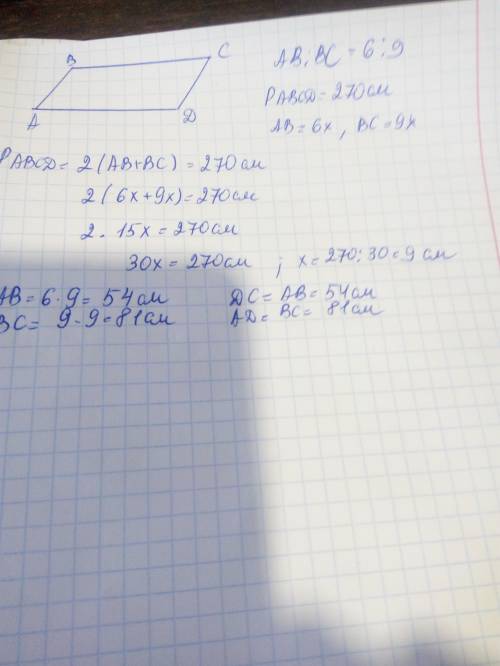 B
C
A
D
AB:BC = 6:9
PABCD = 270см
AB = 6x, BC = 9x
PABCD = 2(AB+BC) = 270см
2(6x+9x) = 270см
2 · 15x = 270см
30x = 270см ; x = 270:30 = 9 см
AB = 6·9 = 54см DC = AB = 54см
BC = 9·9 = 81см AD = BC = 81см